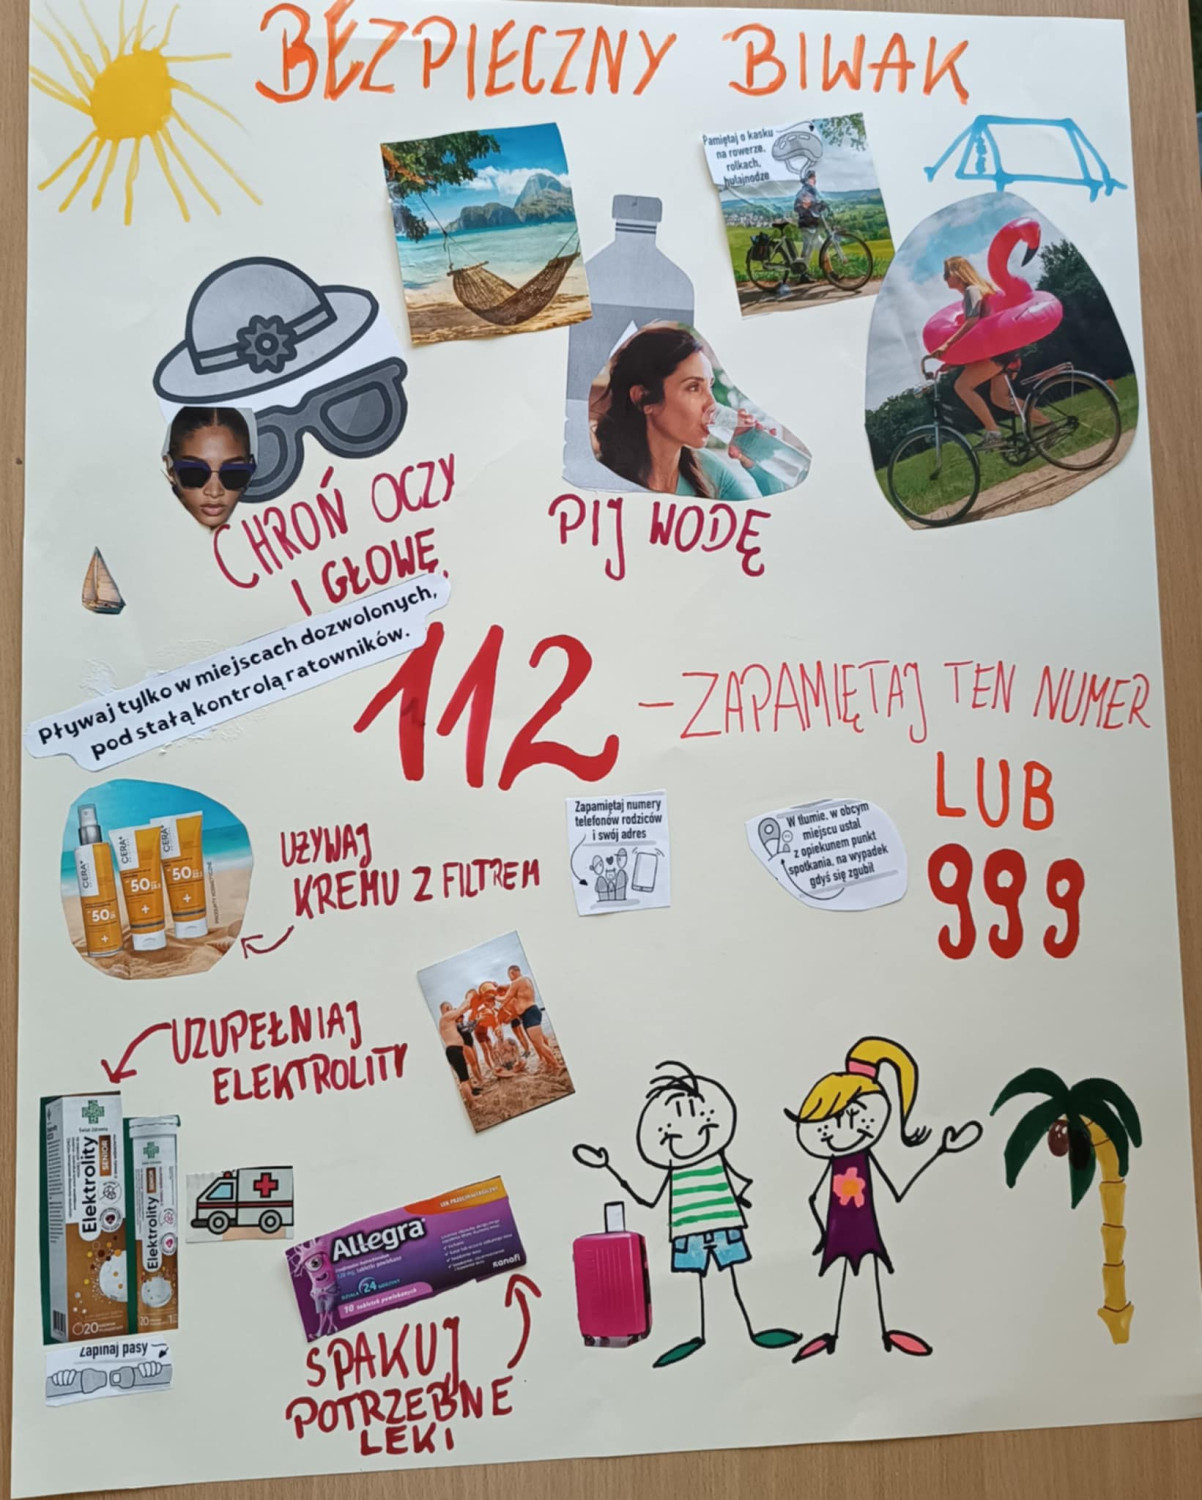 BEZPIECZNY BIWAK
Pamiętaj o kasku
na rowerze,
rolkach,
hulajnodze
CHROŃ OCZY
I GŁOWĘ
PIJ WODĘ
Pływaj tylko w miejscach dozwolonych,
pod stałą kontrolą ratowników.
112 – ZAPAMIĘTAJ TEN NUMER
LUB
999
Zapamiętaj numery
telefonów rodziców
i swój adres
W tłumie, w obcym
miejscu ustal
z opiekunem punkt
spotkania, na wypadek
gdyś się zgubił
CERA+
50
CERA+
50
CERA+
50
UŻYWAJ
KREMU Z FILTREM
UZUPEŁNIAJ
ELEKTROLITY
Elektrolity
SENIOR
20
Elektrolity
Zapinaj pasy
Allegra
24
10 tabletek powlekanych
SPAKUJ
POTRZEBNE
LEKI